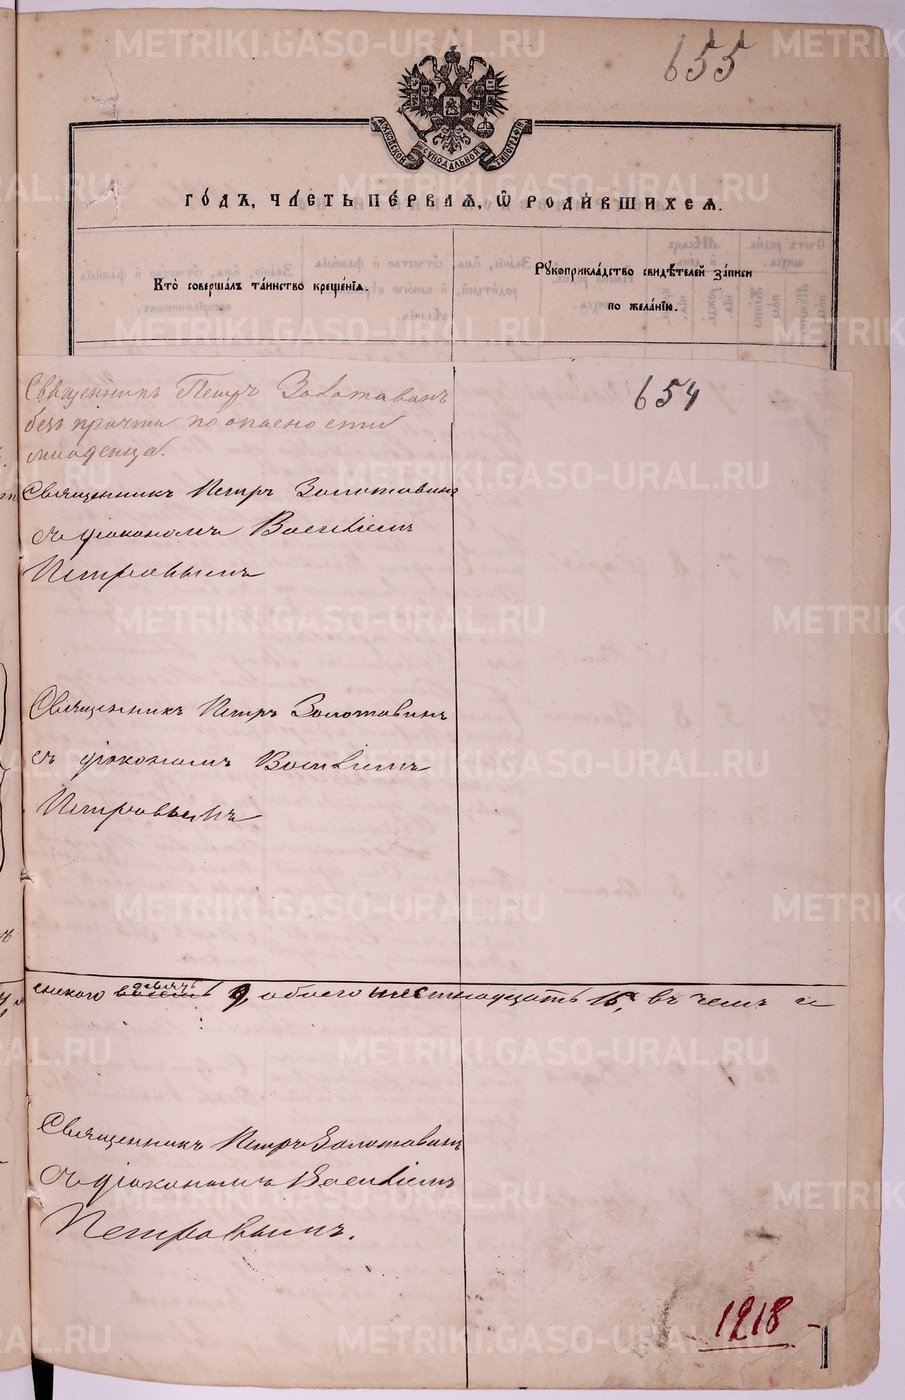 655
МОСКОВСКОЙ СѴНОДАЛЬНОЙ ТИПОГРАФІИ
ГО́ДЪ, ЧА́СТЬ ПЕ́РВАѦ, Ѿ РОДИ́ВШИХСѦ.
Кто̀ соверша́лъ та́инство креще́нїѧ.
Рꙋкоприкла́дство свидѣ́телей за́писи
по жела́нїю.
654
Священникъ Петръ Золотавинъ
безъ причта по опасности
младенца.
Священникъ Петръ Золотавинъ
съ діакономъ Василіемъ
Петровымъ
Священникъ Петръ Золотавинъ
съ діакономъ Василіемъ
Петровымъ
девять
енскаго восемь 9, обоего шестнадцать 16, въ чемъ и
Священникъ Петръ Золотавинъ
съ діакономъ Василіемъ
Петровымъ.
1218
METRIKI.GASO-URAL.RU